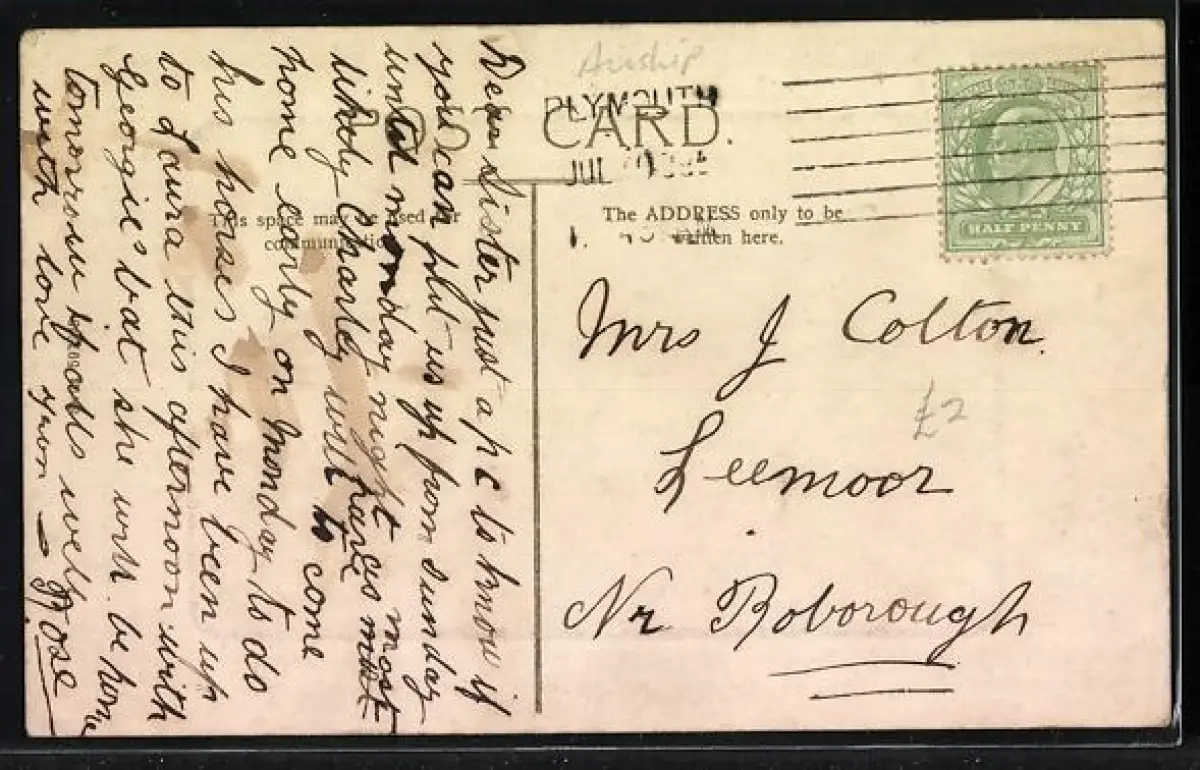 Airship
PLYMOUTH
CARD.
JUL
HALF PENNY
This space may be used for
communication
The ADDRESS only to be
written here.
Dear Sister just a pc to know if
you can put us up from sunday
until monday night as most
likely Charley will have to come
home early on Monday to do
his horses I have been up
to Laura this afternoon with
Georgies bat she will be home
tomorrow if alls well
with love from – Rose
Mrs J Colton.
£2
Leemoor
Nr Roborough